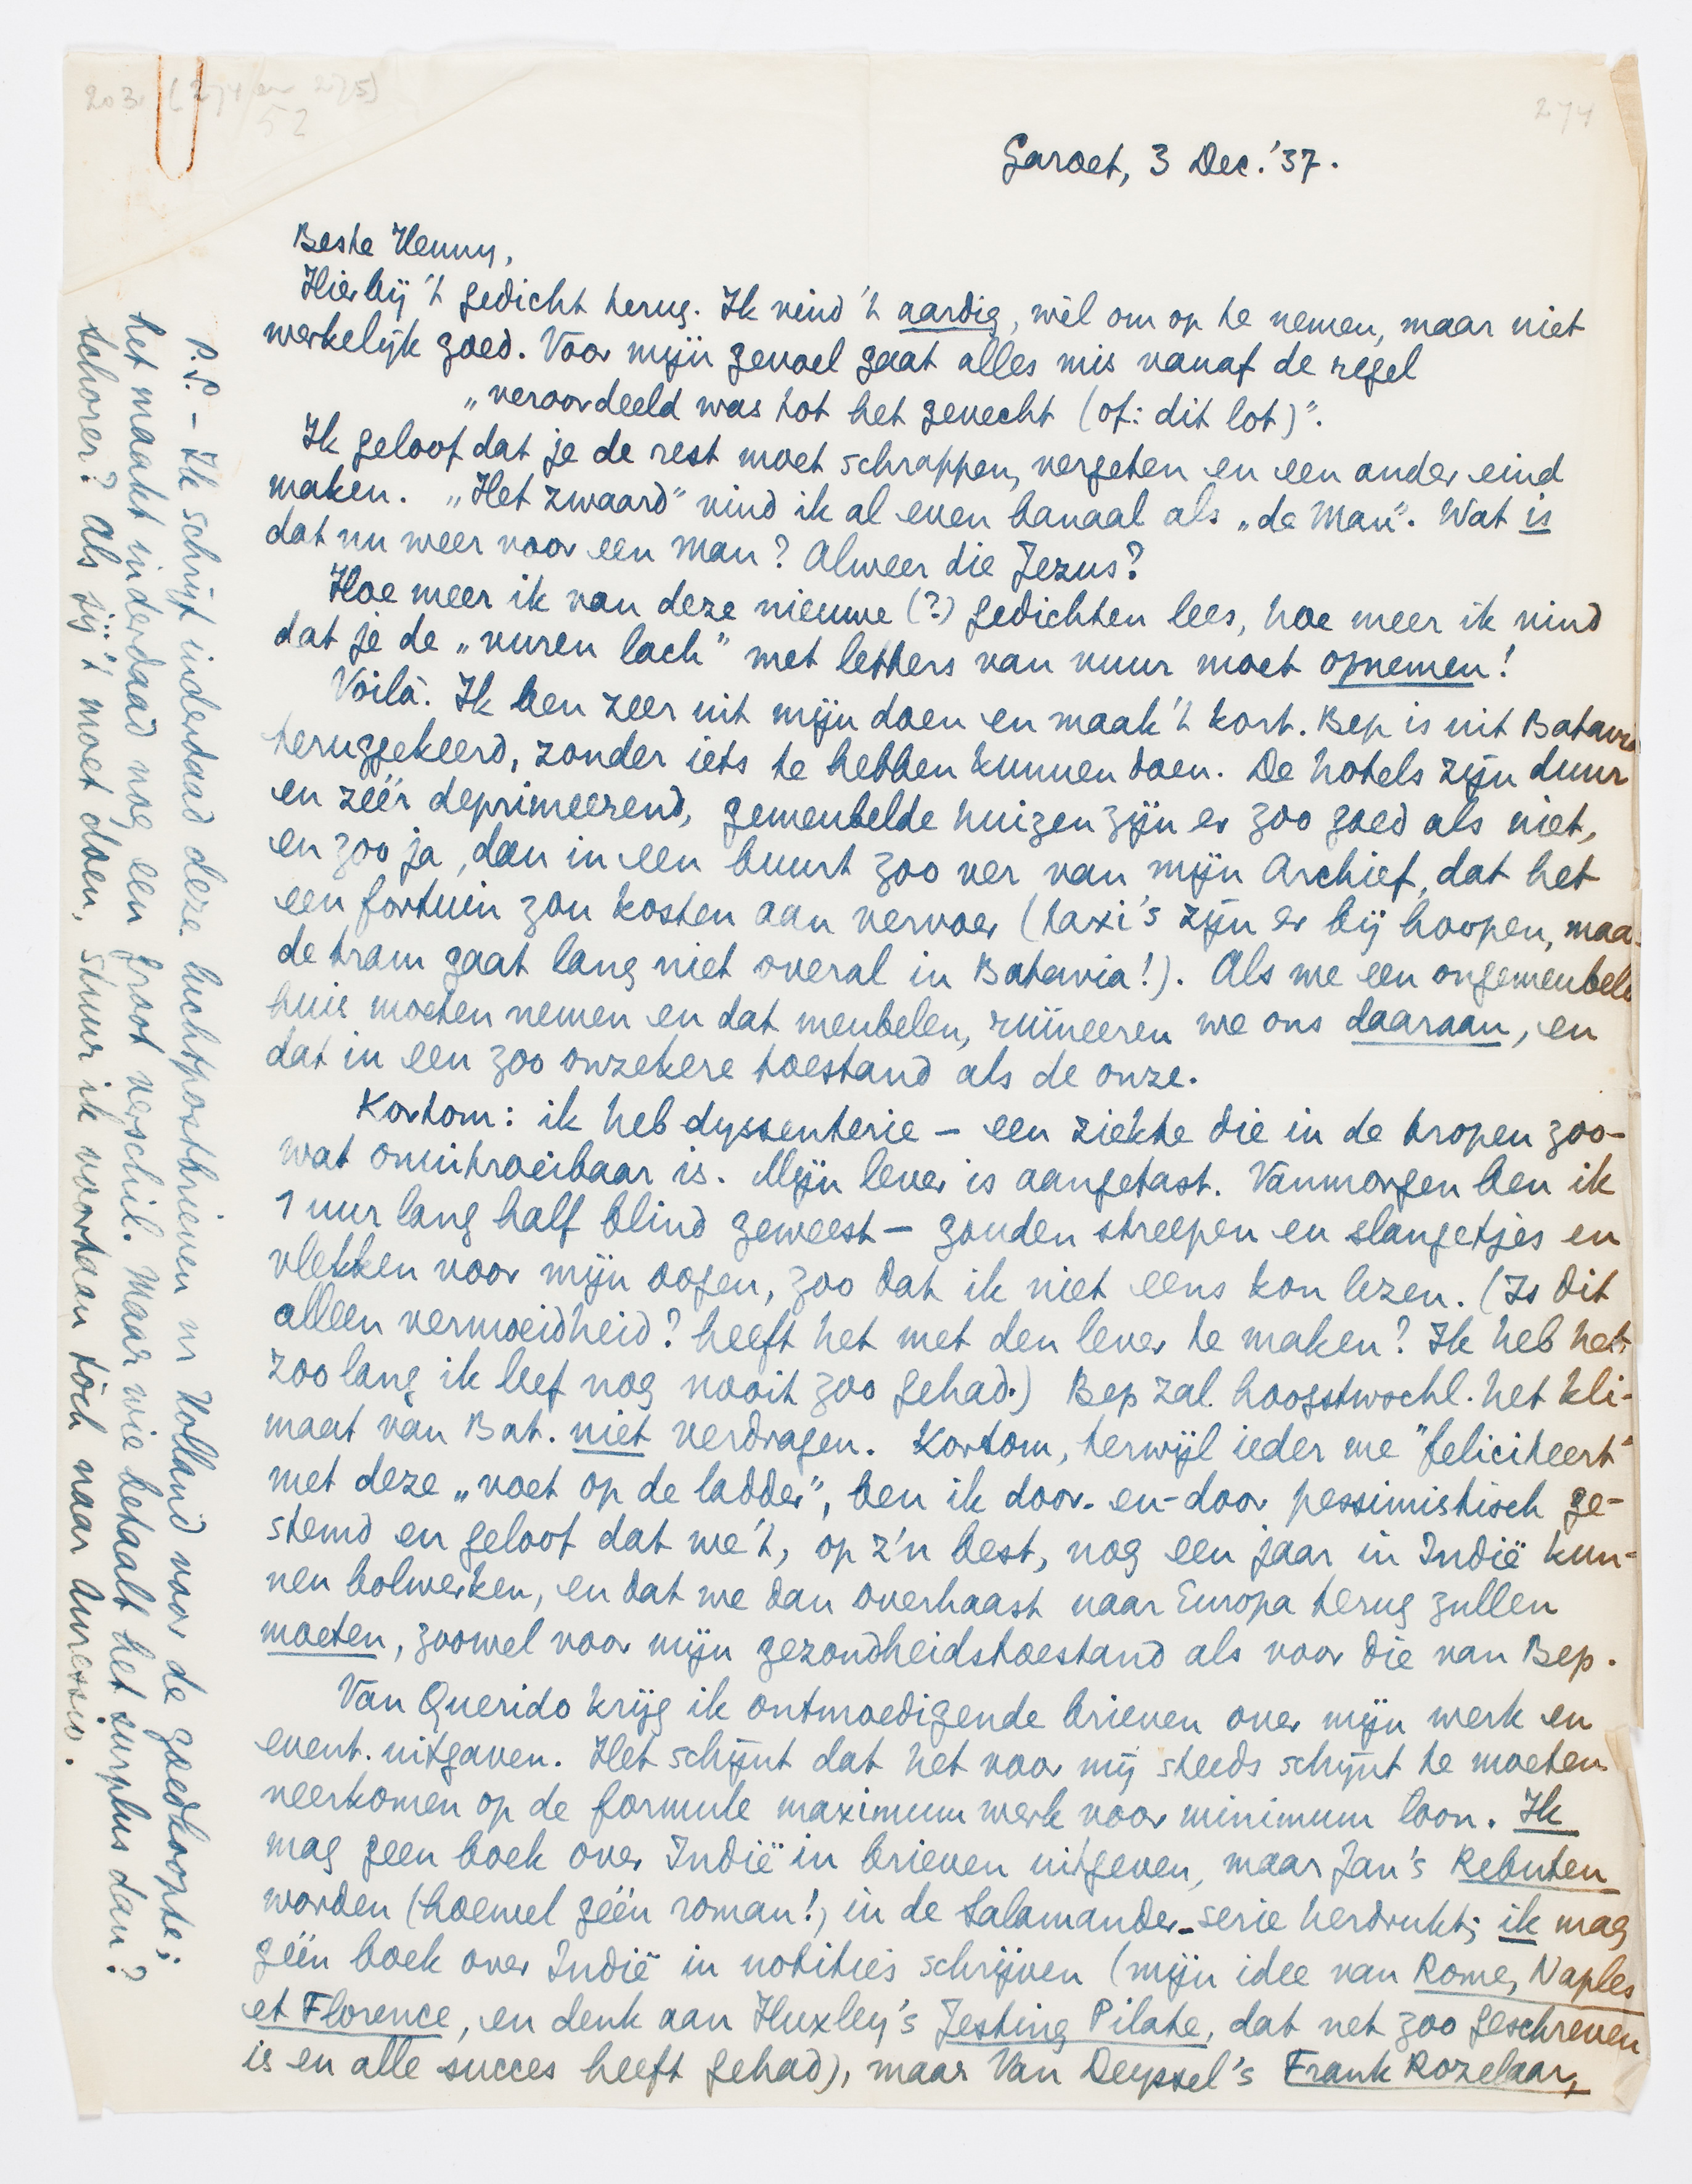 203. (274 en 275)
52
274
Garoet, 3 Dec. '37.
Beste Henny,
Hierbij 't gedicht terug. Ik vind 't aardig, wèl om op te nemen, maar niet
werkelijk goed. Voor mijn gevoel gaat alles mis vanaf de regel
„veroordeeld was tot het gevecht (of: dit lot)".
Ik geloof dat je de rest moet schrappen, vergeten en een ander eind
maken. „Het zwaard" vind ik al even banaal als „de Man". Wat is
dat nu weer voor een Man? Alweer die Jezus?
Hoe meer ik van deze nieuwe (?) gedichten lees, hoe meer ik vind
dat je de „vuren lach" met letters van vuur moet opnemen!
Voilà. Ik ben zeer uit mijn doen en maak 't kort. Bep is uit Batavia
teruggekeerd, zonder iets te hebben kunnen doen. De hotels zijn duur
en zéér deprimeerend, gemeubelde huizen zijn er zoo goed als niet,
en zoo ja, dan in een buurt zoo ver van mijn Archief, dat het
een fortuin zou kosten aan vervoer (taxi's zijn er bij hoopen, maa
de tram gaat lang niet overal in Batavia!). Als we een ongemeubeld
huis moeten nemen en dat meubelen, ruïneeren we ons daaraan, en
dat in een zoo onzekere toestand als de onze.
Kortom: ik heb dyssenterie – een ziekte die in de tropen zoo-
wat onuitroeibaar is. Mijn lever is aangetast. Vanmorgen ben ik
1 uur lang half blind geweest – gouden streepen en slangetjes en
vlekken voor mijn oogen, zoo dat ik niet eens kon lezen. (Is dit
alleen vermoeidheid? heeft het met den lever te maken? Ik heb het
zoo lang ik leef nog nooit zoo gehad.) Bep zal hoogstwschl. het kli-
maat van Bat. niet verdragen. Kortom, terwijl ieder me "feliciteert"
met deze „voet op de ladder", ben ik door-en-door pessimistisch ge-
stemd en geloof dat we 't, op z'n best, nog een jaar in Indië kun-
nen bolwerken, en dat we dan overhaast naar Europa terug zullen
moeten, zoowel voor mijn gezondheidstoestand als voor die van Bep.
Van Querido krijg ik ontmoedigende brieven over mijn werk en
event. uitgaven. Het schijnt dat het voor mij steeds schijnt te moeten
neerkomen op de formule maximum werk voor minimum loon. Ik
mag geen boek over Indië in brieven uitgeven, maar Jan's Rebuten
worden (hoewel géén roman!) in de Salamander-serie herdrukt; ik mag
géén boek over Indië in notities schrijven (mijn idee van Rome, Naples
et Florence, en denk aan Huxley's Jesting Pilate, dat net zoo geschreven
is en alle succes heeft gehad), maar Van Deyssel's Frank Rozelaar,
P.S. – Ik schrijf inderdaad deze luchtpostbrieven nr Holland voor de goedkoopte;
het maakt inderdaad nog een groot verschil. Maar wie betaalt het surplus dan?
Schorer? Als jij 't moet doen, stuur ik voortaan tòch naar Auressio.